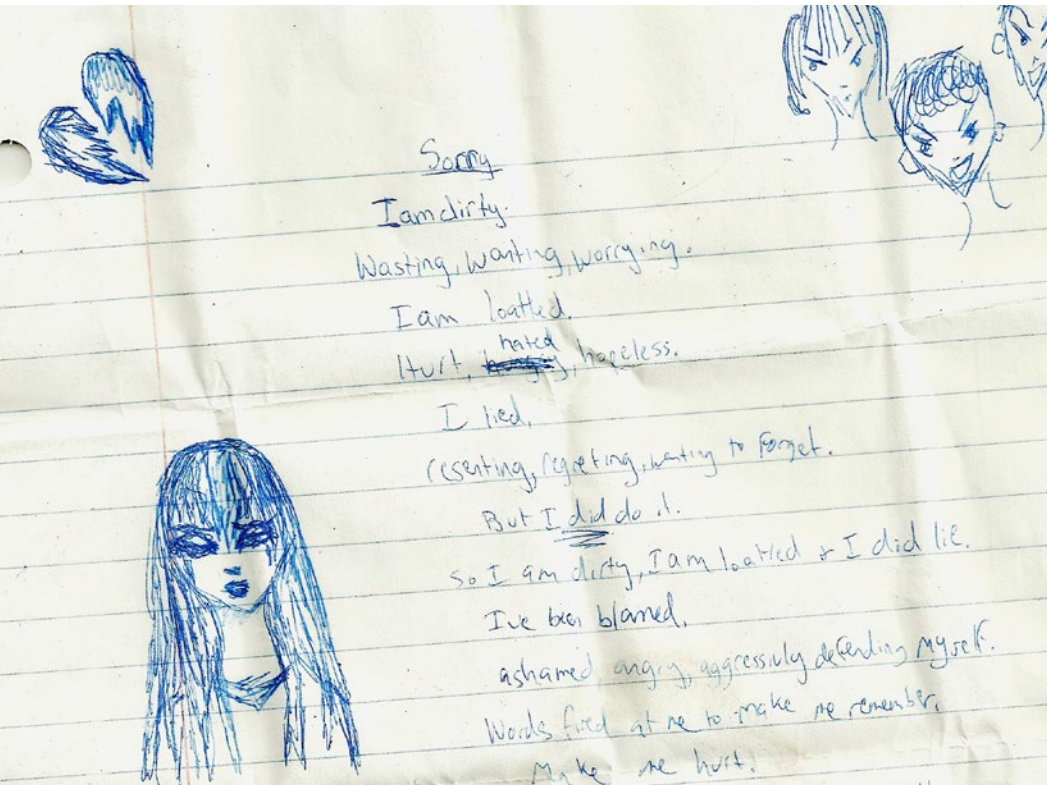 Sorry
I am dirty.
Wasting, wanting, worrying.
I am loathed.
Hurt, hated, hopeless.
I lied,
resenting, regreting, wanting to forget.
But I did do it.
So I am dirty, I am loathed & I did lie.
I've been blamed,
ashamed, angry, aggressivly defending myself.
Words fired at me to make me remember,
Make me hurt.